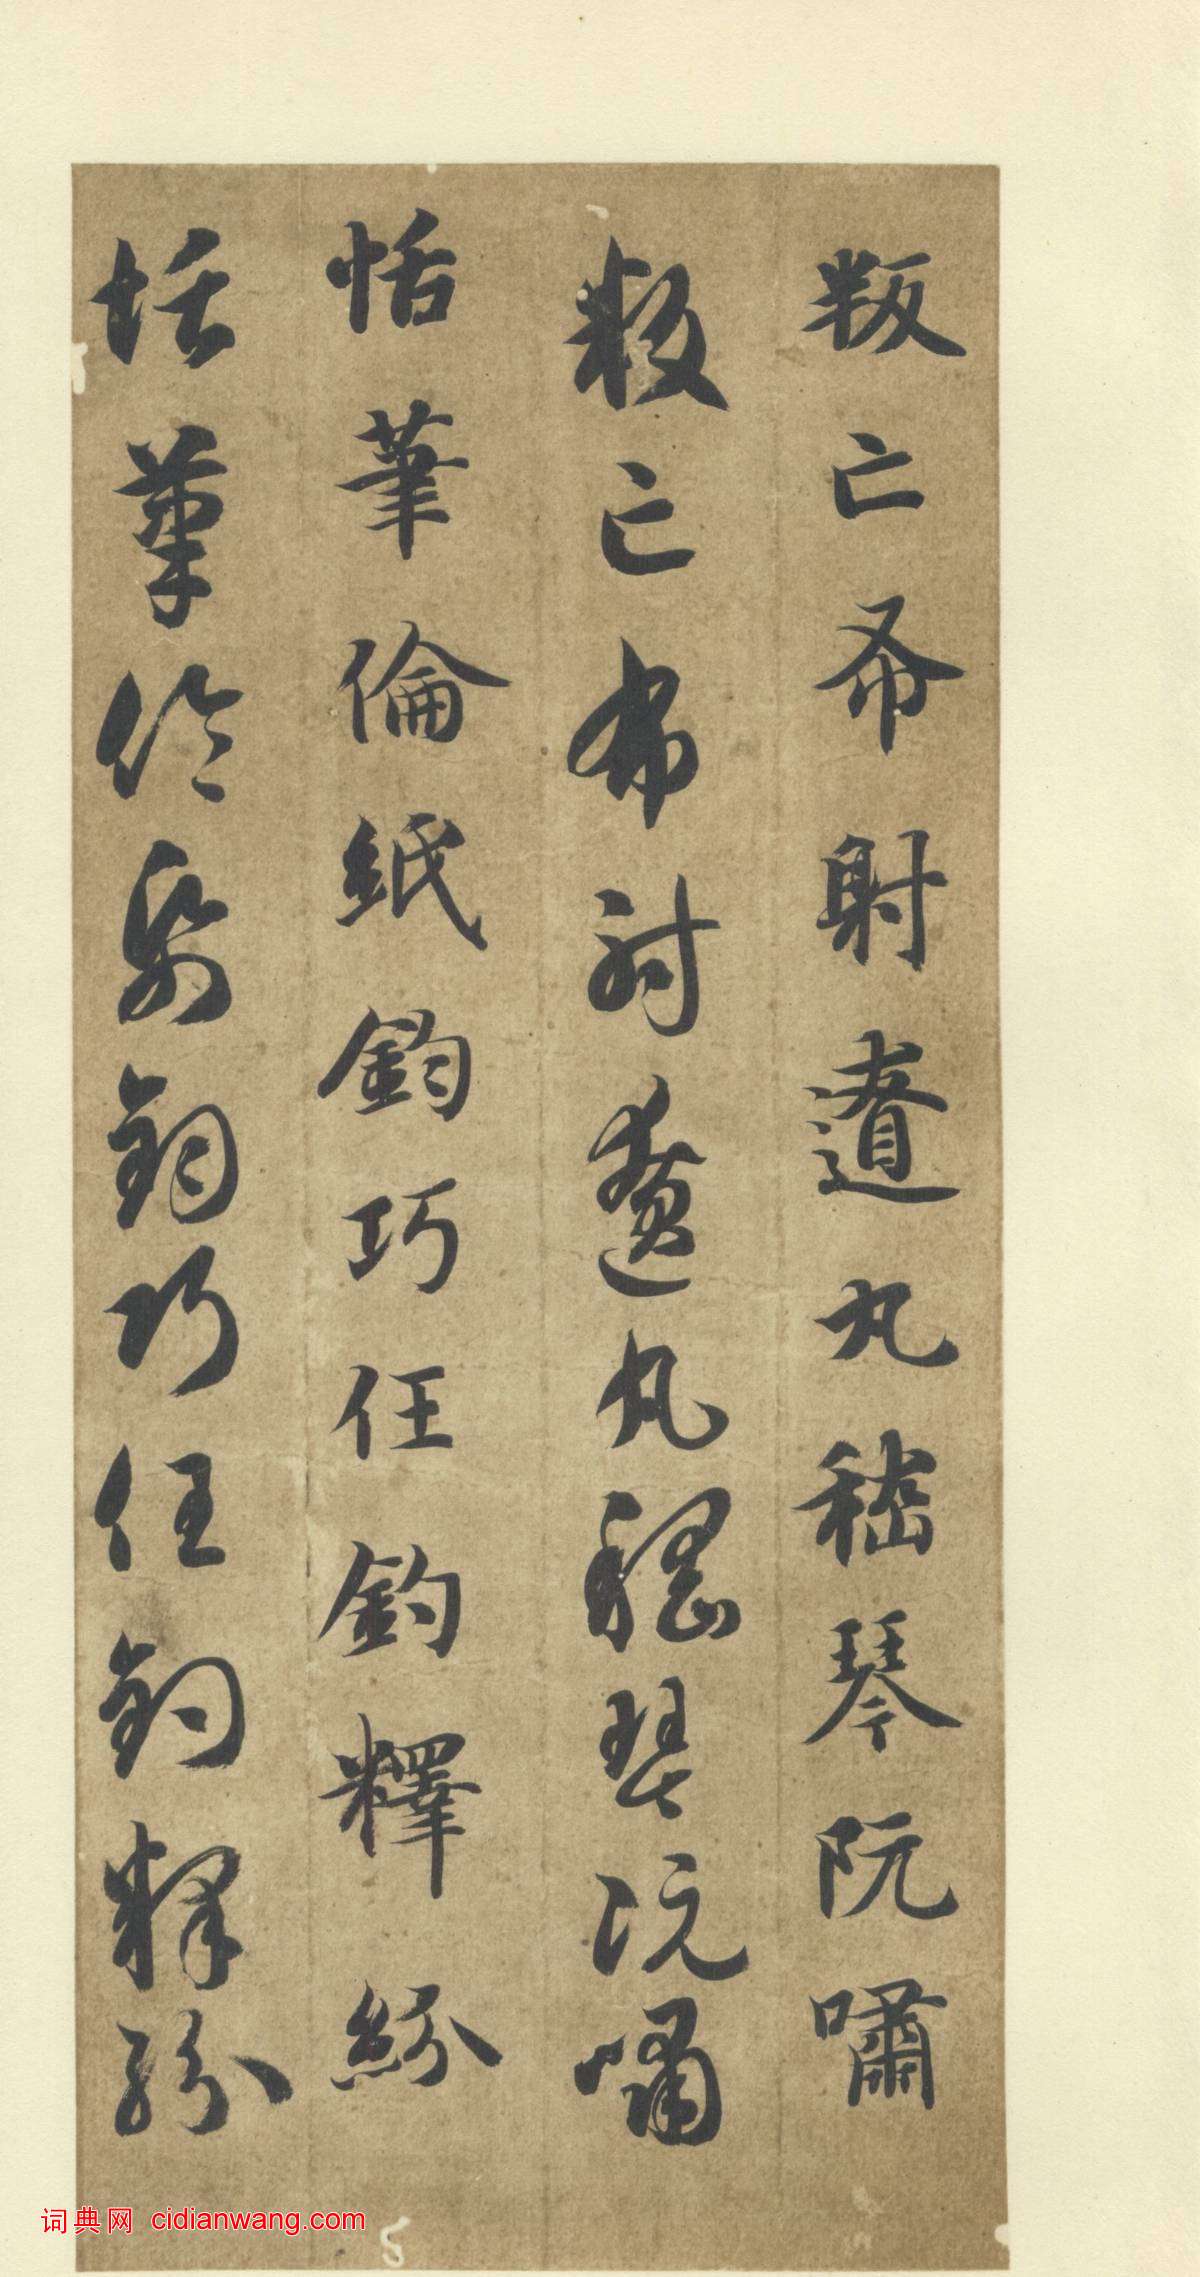 叛亡布射遼丸嵇琴阮嘯
叛亡布射遼丸嵇琴阮嘯
恬筆倫紙鈞巧任釣釋紛
恬筆倫紙鈞巧任釣釋紛
词典网 cidianwang.com